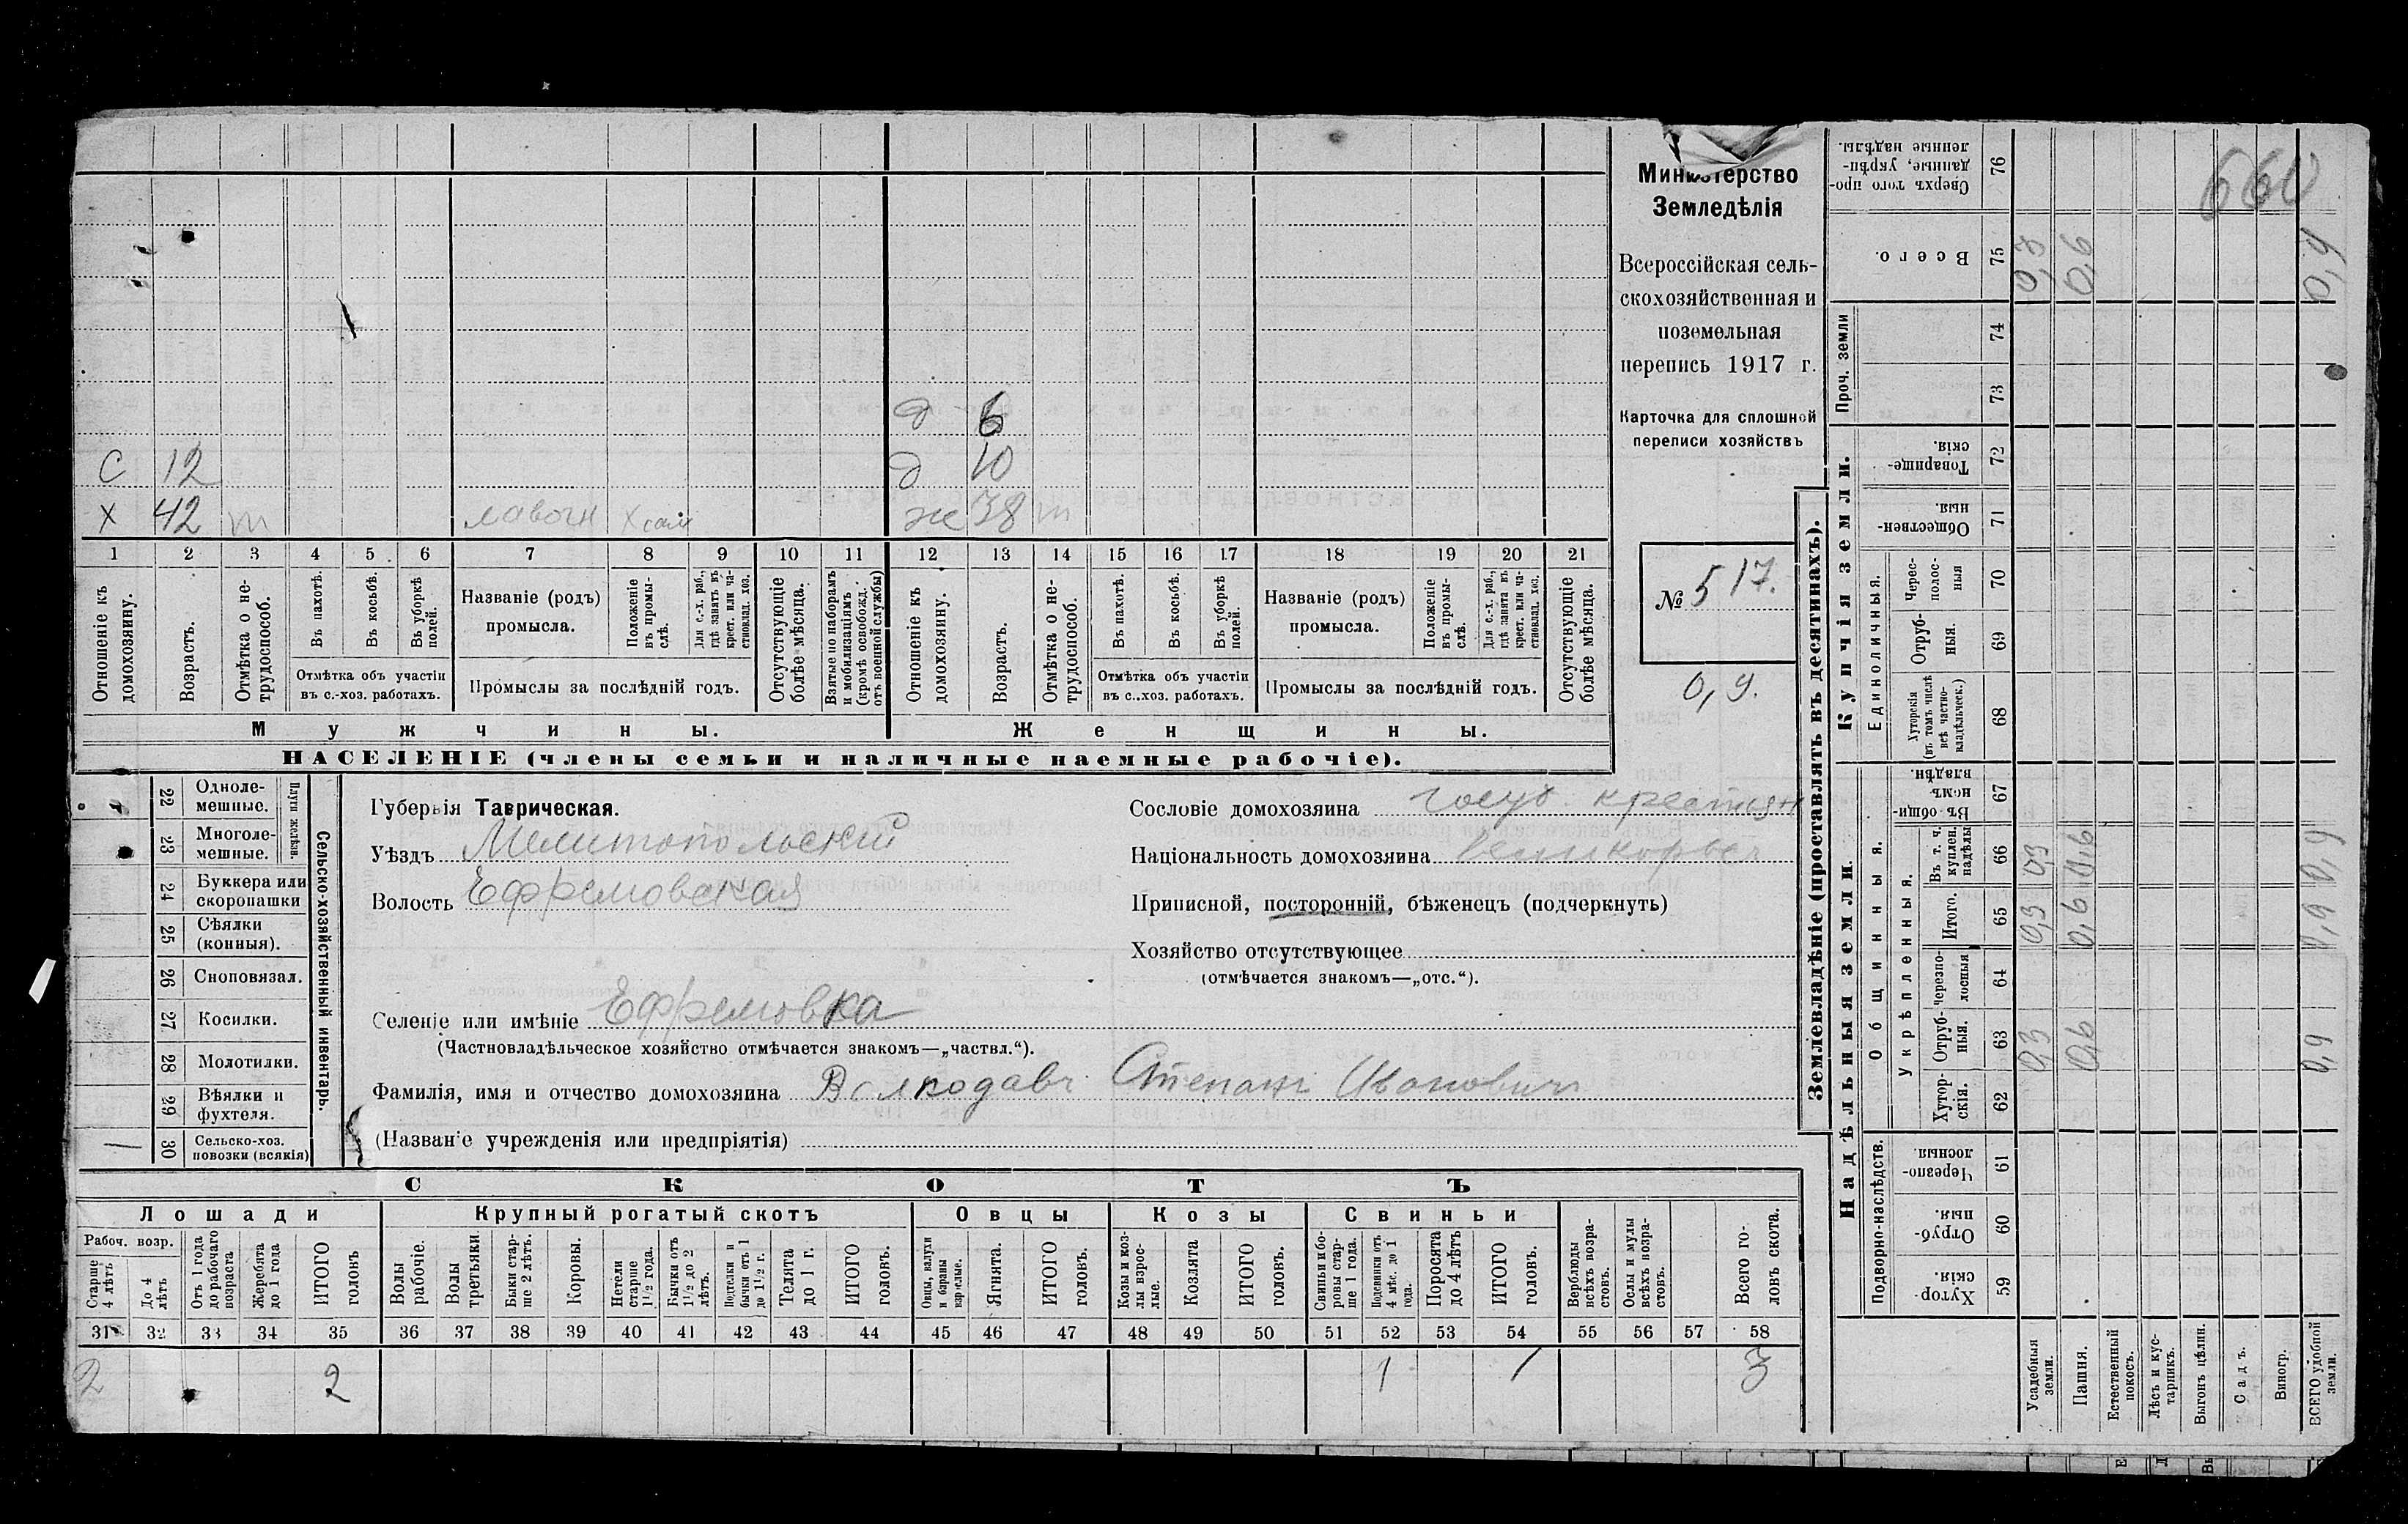 д 6
С 12 д 10
Х 42 лавочн Х сам ж 38
1 2 3 4 5 6 7 8 9 10 11 12 13 14 15 16 17 18 19 20 21
Отношеніе къ домохозяину.
Возрастъ.
Отмѣтка о нетрудоспособ.
Въ пахотѣ.
Въ косьбѣ.
Въ уборкѣ полей.
Отмѣтка объ участіи
въ с.-хоз. работахъ.
Названіе (родъ)
промысла.
Положеніе въ промыслѣ.
Для с.-х. раб., гдѣ занятъ въ крест. или частновлад. хоз.
Промыслы за послѣдній годъ.
Отсутствующіе болѣе мѣсяца.
Взятые по наборамъ и мобилизаціямъ (кромѣ освобожд. отъ военной службы)
Отношеніе къ домохозяину.
Возрастъ.
Отмѣтка о нетрудоспособ.
Въ пахотѣ.
Въ косьбѣ.
Въ уборкѣ полей.
Отмѣтка объ участіи
въ с.-хоз. работахъ.
Названіе (родъ)
промысла.
Положеніе въ промыслѣ.
Для с.-х. раб., гдѣ занята въ крест. или частновлад. хоз.
Промыслы за послѣдній годъ.
Отсутствующіе болѣе мѣсяца.
Мужчины. Женщины.
НАСЕЛЕНІЕ (члены семьи и наличные наемные рабочіе).
Министерство
Земледѣлія
Всероссійская сель-
скохозяйственная и
поземельная
перепись 1917 г.
Карточка для сплошной
переписи хозяйствъ
№ 517.
0,9.
22 Одноле-
мешные.
23 Многоле-
мешные.
Плуги желѣзн.
24 Буккера или
скоропашки
25 Сѣялки
(конныя).
26 Сноповязал.
27 Косилки.
28 Молотилки.
29 Вѣялки и
фухтеля.
30 Сельско-хоз.
повозки (всякія)
Сельско-хозяйственный инвентарь.
Губернія Таврическая.
Уѣздъ Мелитопольскій
Волость Ефремовская
Сословіе домохозяина госуд. крестьян
Національность домохозяина великоросс
Приписной, посторонній, бѣженецъ (подчеркнуть)
Хозяйство отсутствующее
(отмѣчается знакомъ—„отс.“).
Селеніе или имѣніе Ефремовка
(Частновладѣльческое хозяйство отмѣчается знакомъ—„частвл.“).
Фамилія, имя и отчество домохозяина Волкодавъ Степанъ Ивановичъ
(Названіе учрежденія или предпріятія)
СКОТЪ
Лошади Крупный рогатый скотъ Овцы Козы Свиньи
Рабоч. возр.
Старше 4 лѣтъ
До 4 лѣтъ
Отъ 1 года до рабочаго возраста
Жеребята до 1 года
ИТОГО головъ
Волы рабочіе.
Волы третьяки.
Быки старше 2 лѣтъ.
Коровы.
Нетели старше 1 1/2 года.
Бычки отъ 1 1/2 до 2 лѣтъ.
Подтелки и бычки отъ 1 до 1 1/2 г.
Телята до 1 г.
ИТОГО головъ.
Овцы, валухи и бараны взрослые.
Ягнята.
ИТОГО головъ.
Козы и козлы взрослые.
Козлята
ИТОГО головъ.
Свиньи и боровы старше 1 года.
Подсвинки отъ 4 мѣс. до 1 года.
Поросята до 4 лѣтъ
ИТОГО головъ.
Верблюды всѣхъ возрастовъ.
Ослы и мулы всѣхъ возрастовъ.
Всего головъ скота.
31 32 33 34 35 36 37 38 39 40 41 42 43 44 45 46 47 48 49 50 51 52 53 54 55 56 57 58
2 2 1 1 3
Землевладѣніе (проставлять въ десятинахъ).
660
Сверхъ того проданные, укрѣпленные надѣлы. 76
Всего. 75 0,3 0,6 0,9
Проч. земли 74
73
Купчія земли.
Товарищескія. 72
Общественныя. 71
Единоличныя.
Чересполосныя 70
Отрубныя. 69
Хуторскія (въ томъ числѣ всѣ частновладѣльческ.) 68
Надѣльныя земли.
Общинныя.
Въ общинномъ владѣн. 67
Укрѣпленныя.
Въ т. ч. куплен. надѣлы 66 0,3 0,6 0,9
Итого. 65 0,3 0,6 0,9
Черезполосныя 64
Отрубныя. 63 0,3 0,6 0,9
Хуторскія. 62
Подворно-наслѣдств.
Черезполосныя. 61
Отрубныя. 60
Хуторскія 59
Усадебныя земли.
Пашня.
Естественный покосъ.
Лѣсъ и кустарникъ.
Выгонъ цѣлин.
Садъ.
Виногр.
ВСЕГО удобной земли.